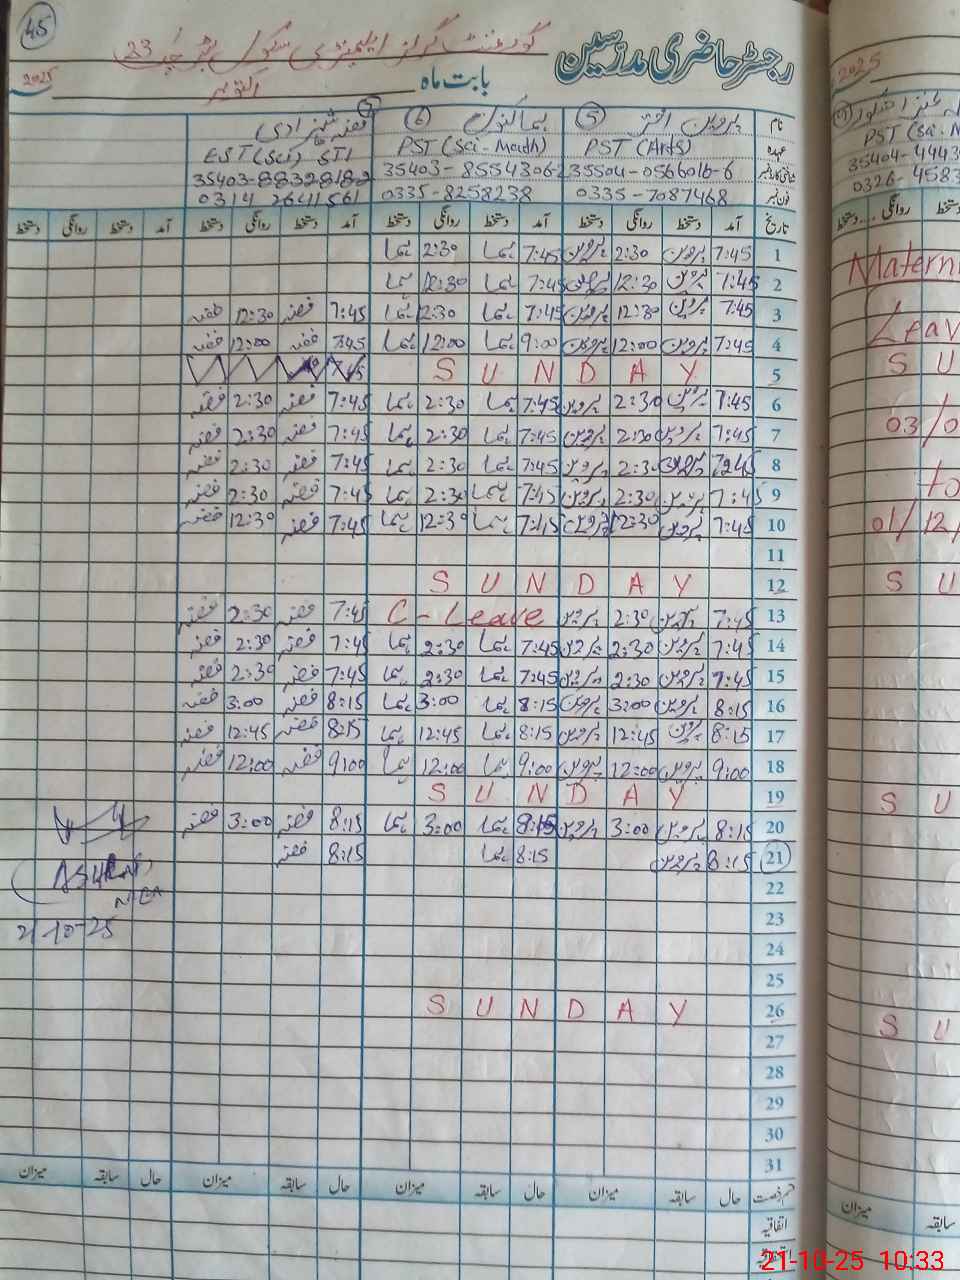 45
رجسٹر حاضری مدرسین
گورنمنٹ گرلز ایلیمنٹری سکول
23
بابت ماہ اکتوبر 2025
نام پروین اختر 5 ہما 6 شہزادی
عہدہ PST (Arts) PST (Sci-Math) EST (Sci) STI
35504-0566016-6 35403-8554306-2 35403-8832818-2
فون نمبر 0335-7087468 0335-8258238 0314 2641561
تاریخ آمد دستخط روانگی دستخط آمد دستخط روانگی دستخط آمد دستخط روانگی دستخط آمد دستخط روانگی دستخط
1 7:45 پروین 2:30 پروین 7:45 ہما 2:30 ہما
2 7:45 پروین 12:30 پروین 7:45 ہما 12:30 ہما
3 7:45 پروین 12:30 پروین 7:45 ہما 2:30 ہما 7:45 فضہ 12:30 فضہ
4 7:45 پروین 12:00 پروین 9:00 ہما 12:00 ہما 7:45 فضہ 12:00 فضہ
5 SUNDAY 7:45
6 7:45 پروین 2:30 پروین 7:45 ہما 2:30 ہما 7:45 فضہ 2:30 فضہ
7 7:45 پروین 2:30 پروین 7:45 ہما 2:30 ہما 7:45 فضہ 2:30 فضہ
8 7:45 پروین 2:30 پروین 7:45 ہما 2:30 ہما 7:45 فضہ 2:30 فضہ
9 7:45 پروین 2:30 پروین 7:45 ہما 2:30 ہما 7:45 فضہ 2:30 فضہ
10 7:45 پروین 12:30 پروین 7:45 ہما 12:30 ہما 7:45 فضہ 12:30 فضہ
11
12 SUNDAY
13 7:45 پروین 2:30 پروین C-Leave 7:45 فضہ 2:30 فضہ
14 7:45 پروین 2:30 پروین 7:45 ہما 2:30 ہما 7:45 فضہ 2:30 فضہ
15 7:45 پروین 2:30 پروین 7:45 ہما 2:30 ہما 7:45 فضہ 2:30 فضہ
16 8:15 پروین 3:00 پروین 8:15 ہما 3:00 ہما 8:15 فضہ 3:00 فضہ
17 8:15 پروین 12:45 پروین 8:15 ہما 12:45 ہما 8:15 فضہ 12:45 فضہ
18 9:00 پروین 12:00 پروین 9:00 ہما 12:00 ہما 9:00 فضہ 12:00 فضہ
19 SUNDAY
20 8:15 پروین 3:00 پروین 8:15 ہما 3:00 ہما 8:15 فضہ 3:00 فضہ
21 8:15 پروین 8:15 ہما 8:15 فضہ
22
23
21-10-25
24
25
26 SUNDAY
27
28
29
30
31
قسم رخصت حال سابقہ میزان حال سابقہ میزان حال سابقہ میزان حال سابقہ میزان
اتفاقیہ
2025
PST (Sci-M
35404-4443
0326-4583
روانگی دستخط
Matern
Leav
SU
03/0
to
01/12/
SU
SU
SU
میزان سابقہ
21-10-25 10:33